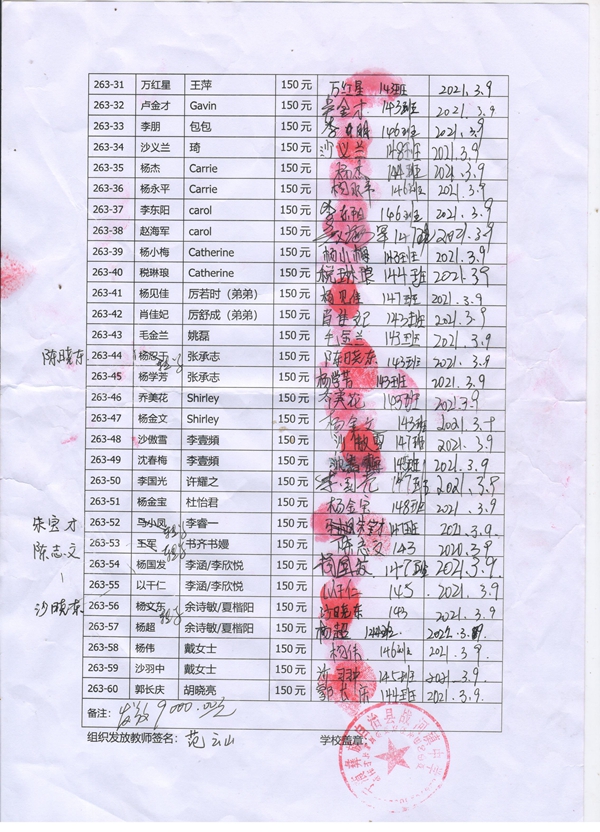 263-31 万红星 王萍 150 元 万红星 143班 2021.3.9
263-32 卢金才 Gavin 150 元 金才 143班 2021.3.9
263-33 李朋 包包 150 元 李朋 146班 2021.3.9
263-34 沙义兰 琦 150 元 沙义兰 148班 2021.3.9
263-35 杨杰 Carrie 150 元 杨杰 144班 2021.3.9
263-36 杨永平 Carrie 150 元 杨永平 146班 2021.3.9
263-37 李东阳 carol 150 元 李东阳 146班 2021.3.9
263-38 赵海军 carol 150 元 军 147班 2021.3.9
263-39 杨小梅 Catherine 150 元 杨小梅 143班 2021.3.9
263-40 税琳琅 Catherine 150 元 税琳琅 144班 2021.3.9
263-41 杨见佳 厉若时（弟弟） 150 元 杨见佳 147班 2021.3.9
263-42 肖佳妃 厉舒成（弟弟） 150 元 肖佳妃 143班 2021.3.9
263-43 毛金兰 姚磊 150 元 毛金兰 143班 2021.3.9
陈晓东 263-44 张承志 150 元 陈晓东 143班 2021.3.9
263-45 杨学芳 张承志 150 元 杨学芳 143班 2021.3.9
263-46 乔美花 Shirley 150 元 乔美花 143班 2021.3.9
263-47 杨金文 Shirley 150 元 杨金文 143班 2021.3.9
263-48 沙傲雪 李壹頻 150 元 沙傲雪 147班 2021.3.9
263-49 沈春梅 李壹頻 150 元 145班 2021.3.9
263-50 李国光 许耀之 150 元 李国光 147班 2021.3.9
263-51 杨金宝 杜怡君 150 元 杨金宝 148班 2021.3.9
朱宝才 263-52 马小凤 李睿一 150 元 朱宝才 2021.3.9
陈志文 263-53 王军 书齐书嫚 150 元 陈志文 143 2020.3.9
263-54 杨国发 李涵/李欣悦 150 元 杨国发 147班 2021.3.9
263-55 以干仁 李涵/李欣悦 150 元 以干仁 145 2021.3.9
沙晓东 263-56 杨文东 余诗敏/夏楷阳 150 元 沙晓东 143 2021.3.9
263-57 杨超 余诗敏/夏楷阳 150 元 杨超 2021.3.9
263-58 杨伟 戴女士 150 元 杨伟 146班 2021.3.9
263-59 沙羽中 戴女士 150 元 沙羽中 145班 2021.3.9
263-60 郭长庆 胡晓亮 150 元 郭长庆 144班 2021.3.9
备注：发放9000.00元
组织发放教师签名：范云山 学校盖章：